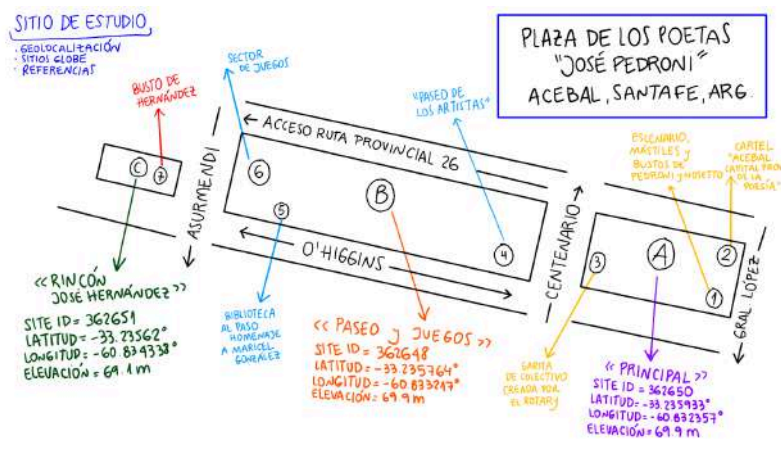 SITIO DE ESTUDIO
· GEOLOCALIZACIÓN
· SITIOS GLOBE
· REFERENCIAS
PLAZA DE LOS POETAS
"JOSÉ PEDRONI"
ACEBAL, SANTA FE, ARG.
BUSTO DE
HERNÁNDEZ
SECTOR
DE JUEGOS
"PASEO DE
LOS ARTISTAS"
ESCENARIO,
MÁSTILES y
BUSTOS DE
PEDRONI y MUSETTO
CARTEL
"ACEBAL
CAPITAL PROV.
DE LA
POESÍA"
ACCESO RUTA PROVINCIAL 26
ASURMENDI
O'HIGGINS
CENTENARIO
GRAL LÓPEZ
C 7
6
B
5
4
3
A
2
1
<< RINCÓN
JOSÉ HERNÁNDEZ >>
SITE ID = 362651
LATITUD = -33.23562°
LONGITUD = -60.834338°
ELEVACIÓN = 69.1 m
BIBLIOTECA
AL PASO
HOMENAJE
A MARICEL
GONZÁLEZ
<< PASEO y JUEGOS >>
SITE ID = 362648
LATITUD = -33.235764°
LONGITUD = -60.833217°
ELEVACIÓN = 69.9 m
GARITA
DE COLECTIVO
CREADA POR
EL ROTARY
<< PRINCIPAL >>
SITE ID = 362650
LATITUD = -33.235933°
LONGITUD = -60.832357°
ELEVACIÓN = 69.9 m